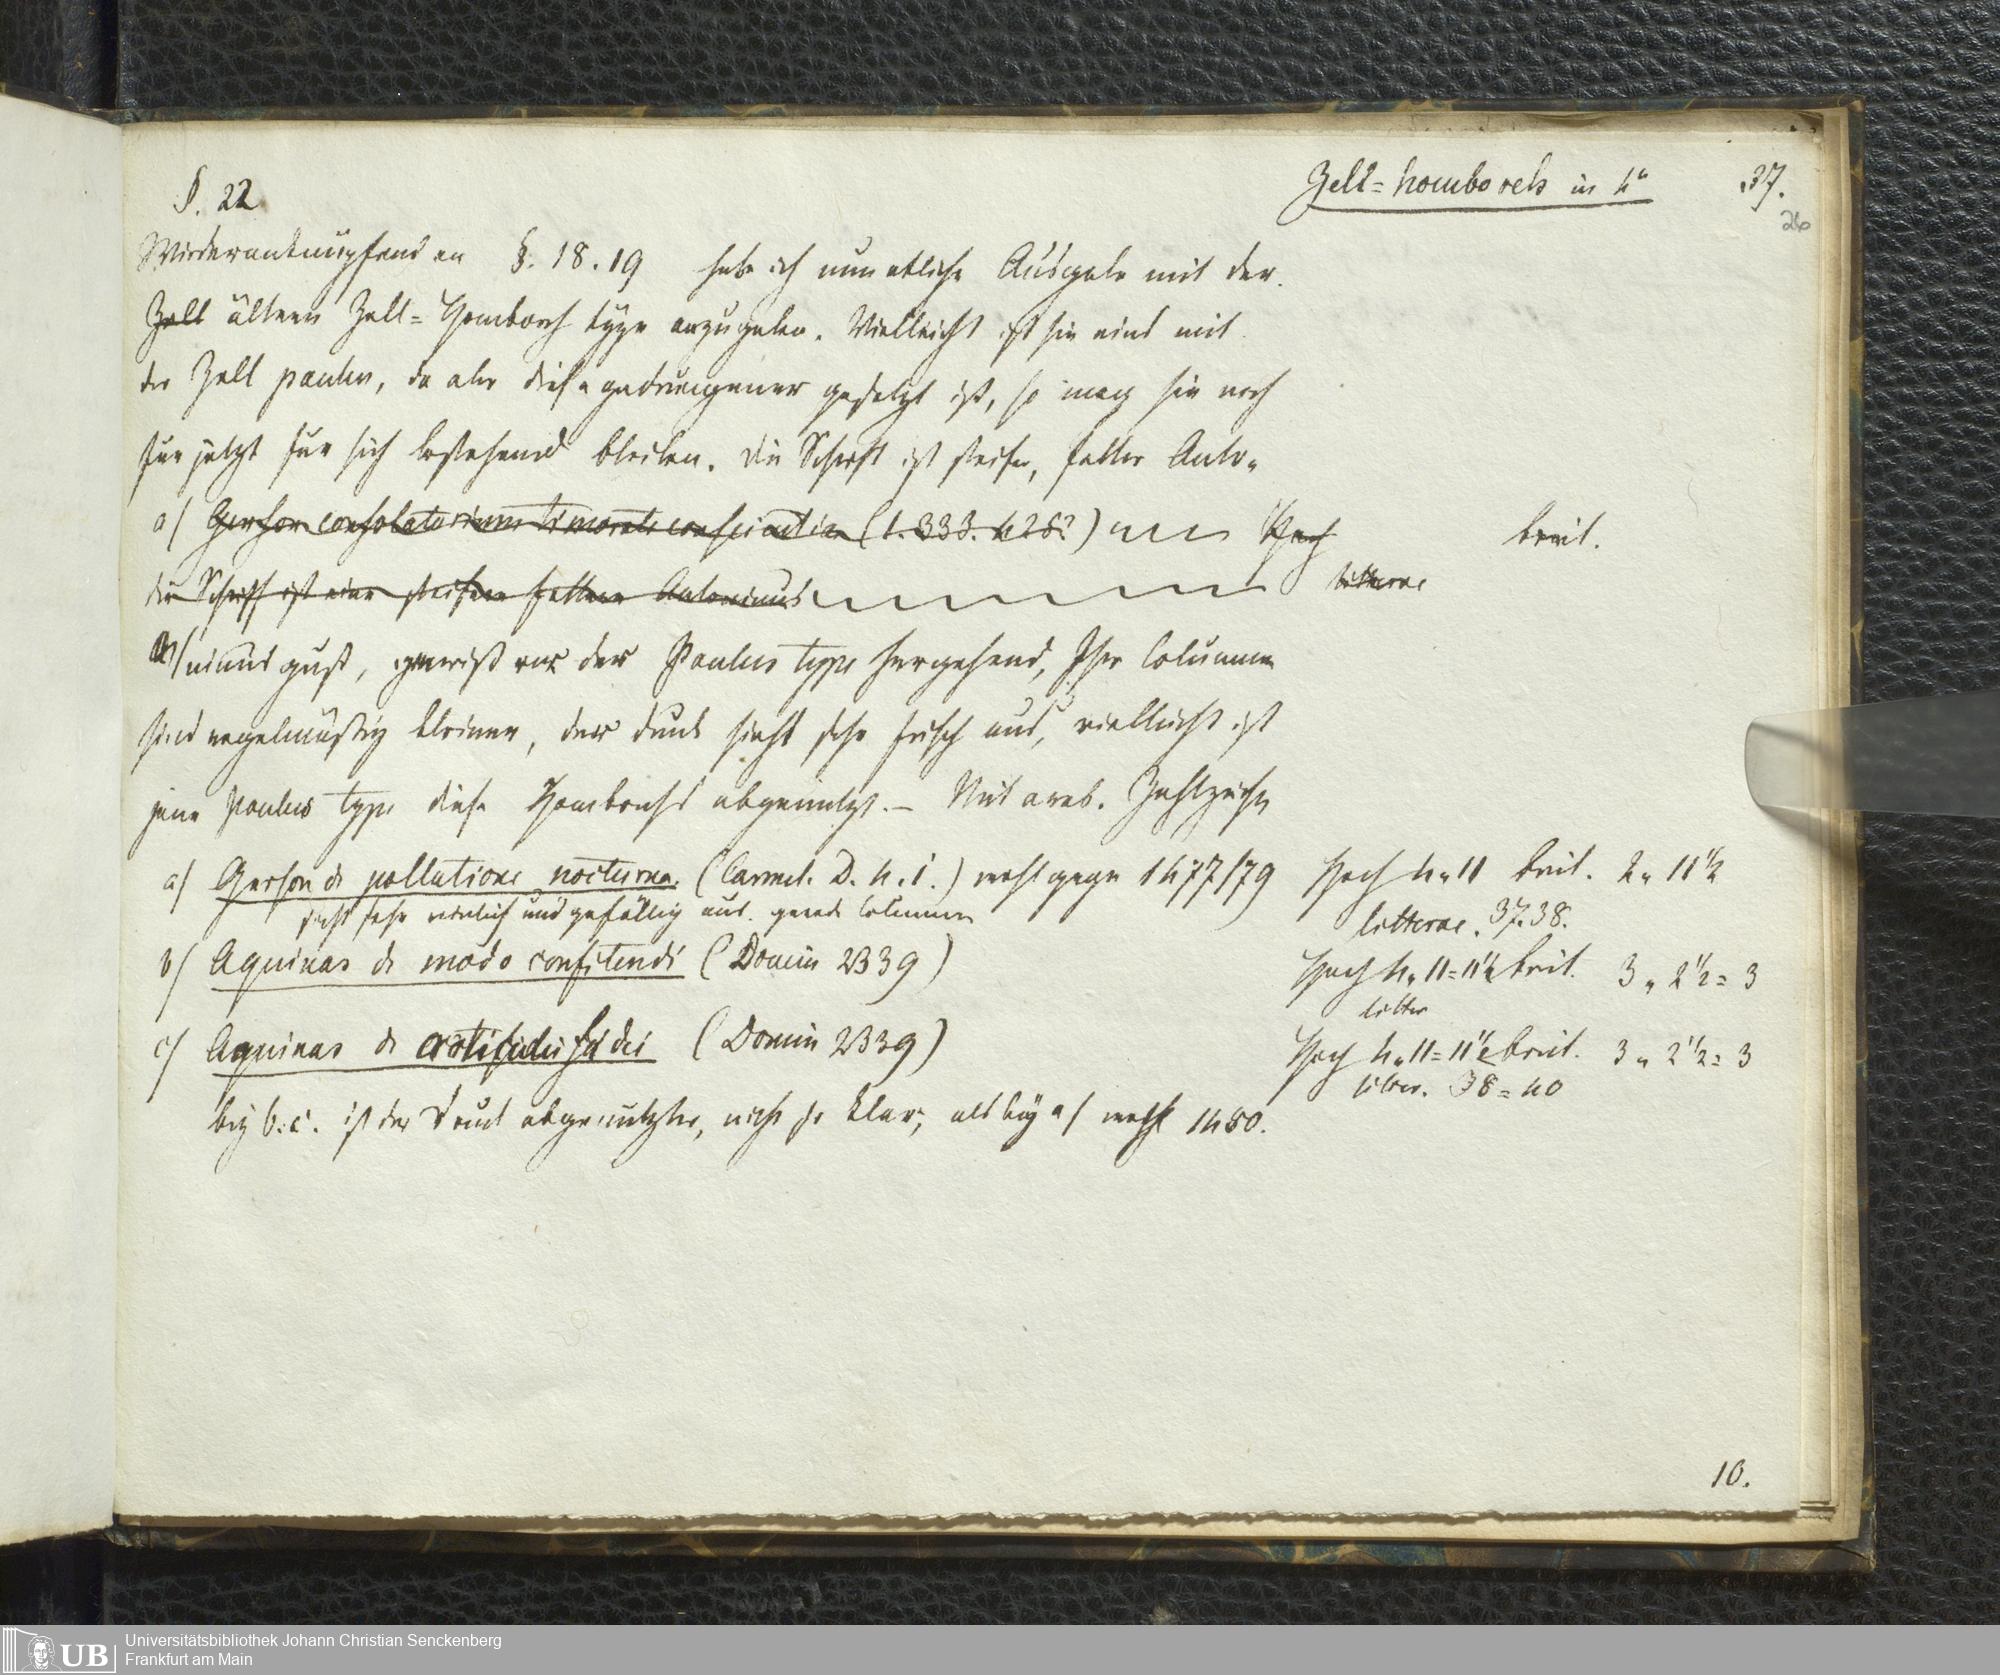 §. 22
Zell=homborch in 4°
37.
26
Wiederanknüpfend an §. 18.19 habe ich nun etliche Ausgabe mit der
Zell ältern Zell=Homborch type anzugeben. Vielleicht ist sie eins mit
der Zell paulus, da aber diese gedrungener gesetzt ist, so mag sie noch
für jetzt für sich bestehend bleiben. Die Schrift ist steife, fette Anto-
a) Gerson consolatorium timoratae conscientiae (t. 333. 4282) Hoch breit.
die Schrift ist eine steifere fettere Antoninus litterae
ninus gust, gewiss vor der Paulus type hergehend, Ihre Columnen
sind regelmässig kleiner, der druck sieht sehr frisch aus, vielleicht ist
jene Paulus type diese Homborchs abgenutzt. – Mit arab. Zahlzeichen
a) Gerson de pollutione nocturna. (Carmel. D. 4. i.) wohl gegen 1477/79 Hoch 4„11 breit. 2„11½
sieht sehr reinlich und gefällig aus. gerade Columnen litterae. 37.38.
b) Aquinas de modo confitendi (Domin 2339) Hoch 4„11=11½ breit. 3„2½=3
litter
c) Aquinas de articulis fidei (Domin 2339) Hoch 4„11=11½ breit. 3„2½=3
litter. 38=40
bey b.c. ist der Druck abgenutzter, nicht so klar, als bey a) wohl 1480.
10.
UB
Universitätsbibliothek Johann Christian Senckenberg
Frankfurt am Main